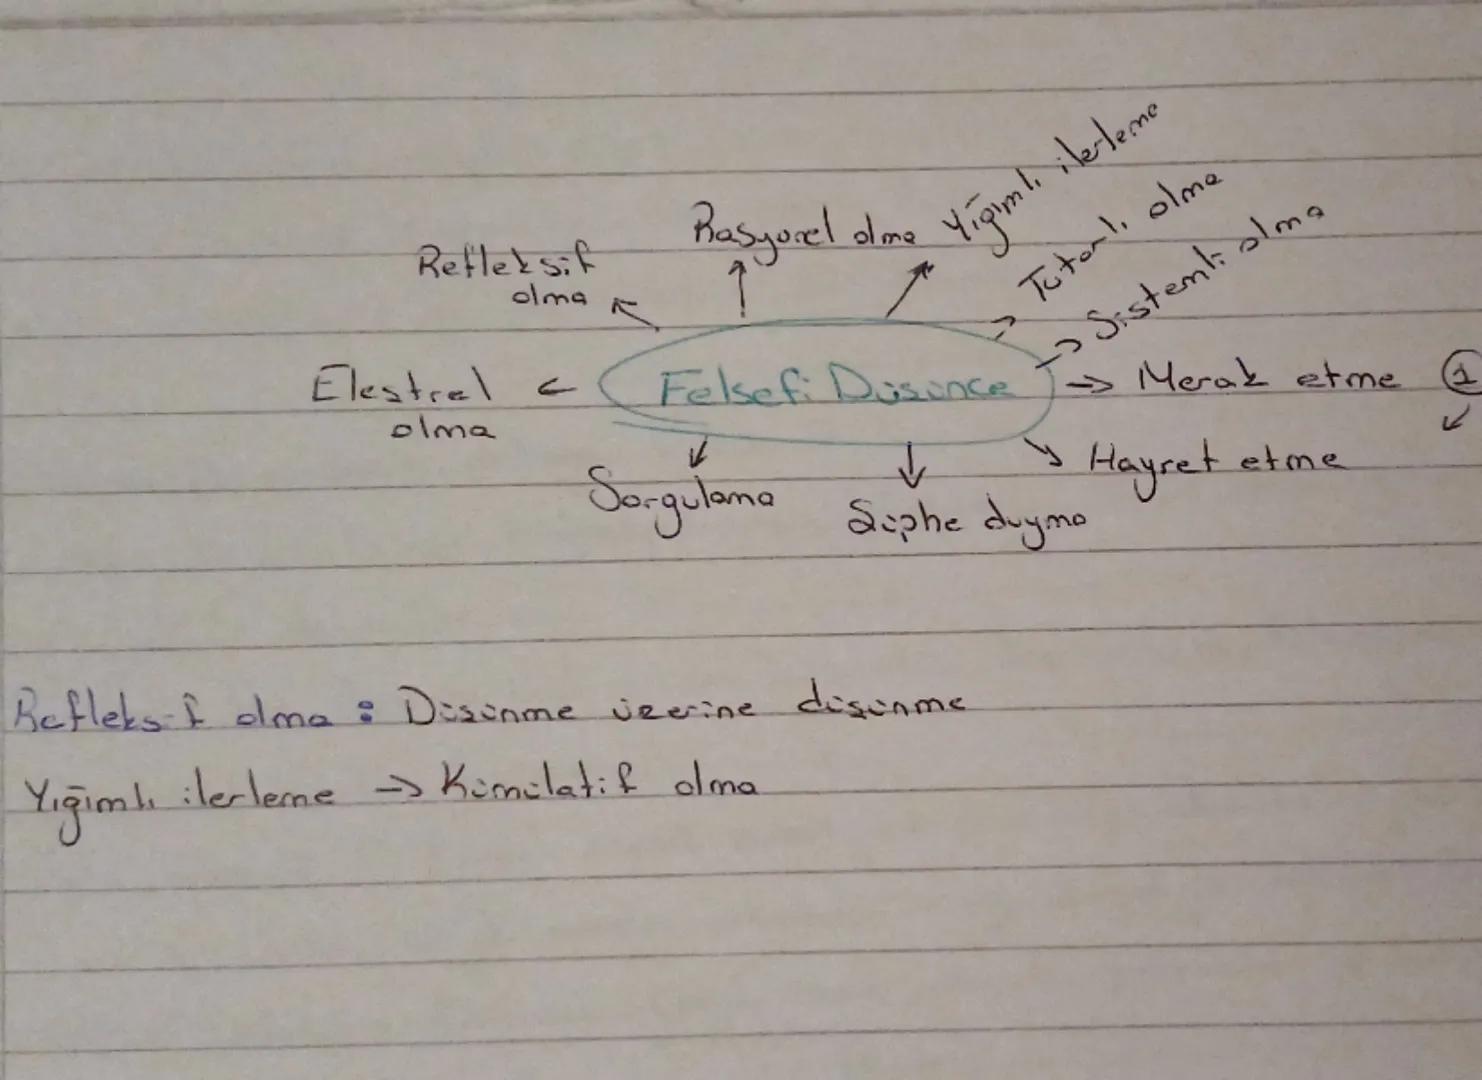 Yığımlı ilerleme
Rasyonel olma
Tutarlı olma
Sistemli olma
Refleksif
olma
Eleştirel
olma
Felsefi Düşünce
Merak etme 1
Hayret etme
Sorgulama
Şüphe duyma
Refleksif olma : Düşünme üzerine düşünme
Yığımlı ilerleme → Kümülatif olma